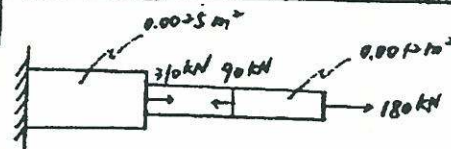 0.0025m²
310kN 90kN
0.0012m²
180kN